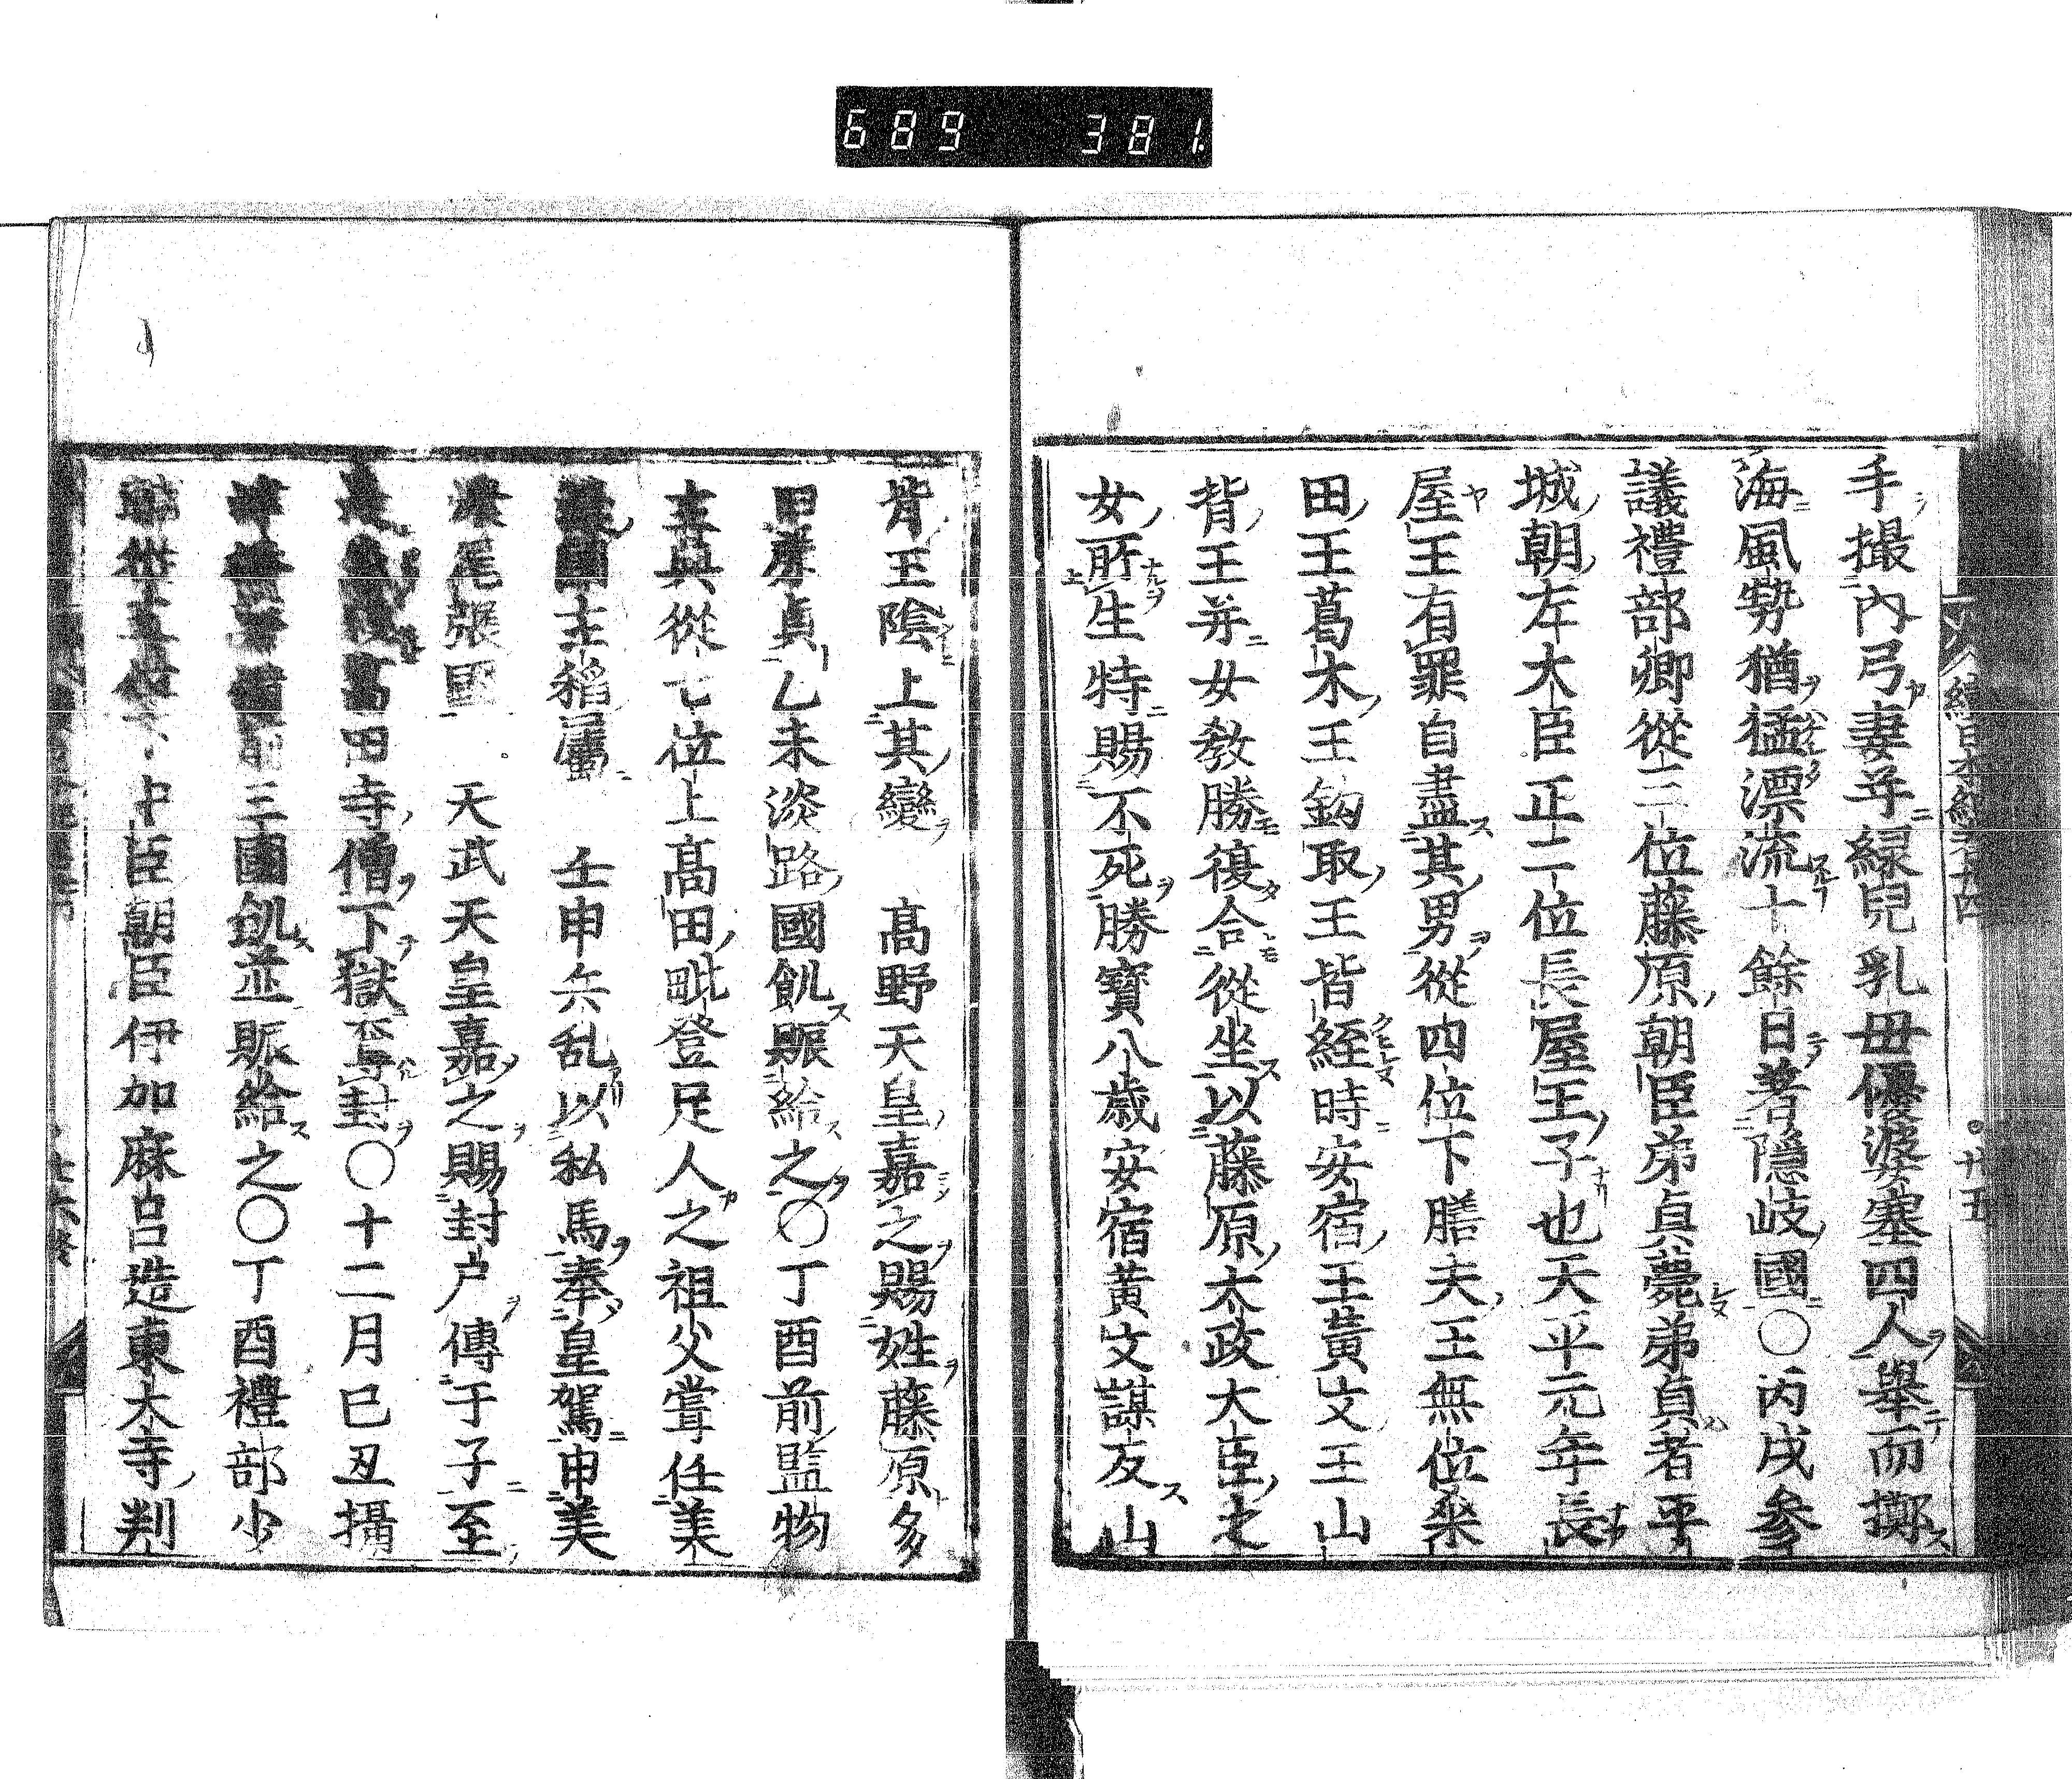 689 381.
手撮内弓妻并緑兒乳母優婆塞四人舉而擲
海風勢猶猛漂流十餘日著隠岐國〇丙戌參
議禮部卿從三位藤原朝臣弟貞薨弟貞者平
城朝左大臣正二位長屋王子也天平元年長
屋王有罪自盡其男從四位下膳夫王無位桒
田王葛木王鈎取王皆經時安宿王黄文王山
背王并女敎勝復合從坐以藤原太政大臣之
女所生特賜不死勝寶八歳安宿黄文謀反山
背王陰上其變 髙野天皇嘉之賜姓藤原多
貞乙未淡路國飢賑給之〇丁酉前監物
主典從七位上髙田毗登足人之祖父嘗任美
主稲屬 壬申兵乱以私馬奉皇駕申美
尾張國 天武天皇嘉之賜封户傳于子至
髙田寺僧下獄奪封〇十二月巳丑攝
三國飢並賑給之〇丁酉禮部少
中臣朝臣伊加麻呂造東大寺判